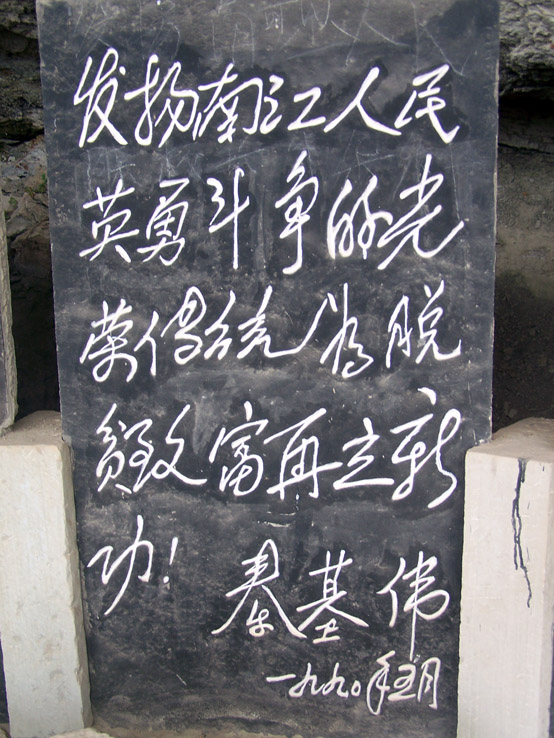 发扬南江人民
英勇斗争的光
荣传统为脱
贫致富再立新
功！
秦基伟
一九九〇年五月